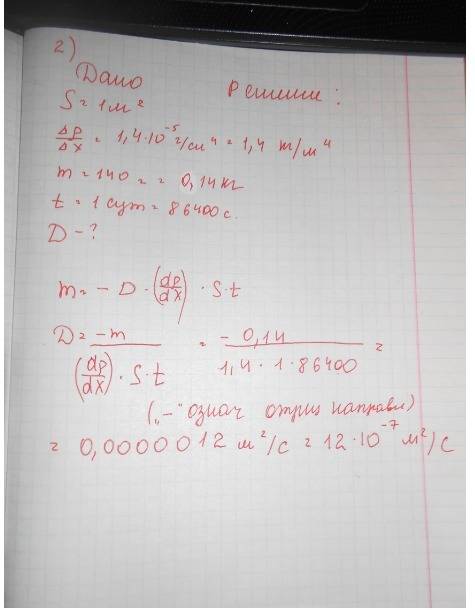 2)
Дано Решение:
S = 1 м²
Δρ/Δx = 1,4·10⁻⁵ г/см⁴ = 1,4 г/м⁴
m = 140 = = 0,14 кг
t = 1 сут = 86400 с.
D - ?
m = - D · (dρ/dx) · S·t
D = -m / (dρ/dx) · S·t = - 0,14 / 1,4 · 1 · 86400 =
(„-" означ отриц направл)
= 0,0000012 м²/с = 12·10⁻⁷ м²/с